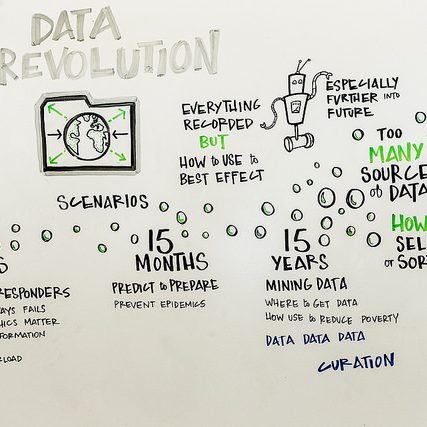 DATA
REVOLUTION
EVERYTHING
RECORDED
BUT
HOW to USE to
BEST EFFECT
ESPECIALLY
FURTHER INTO
FUTURE
TOO
MANY
SOURCE
of DATA
HOW
SEL
or SOR
SCENARIOS
S
RESPONDERS
AYS FAILS
HICS MATTER
FORMATION
RLOAD
15
MONTHS
PREDICT to PREPARE
PREVENT EPIDEMICS
15
YEARS
MINING DATA
WHERE to GET DATA
HOW USE to REDUCE POVERTY
DATA DATA DATA
CURATION